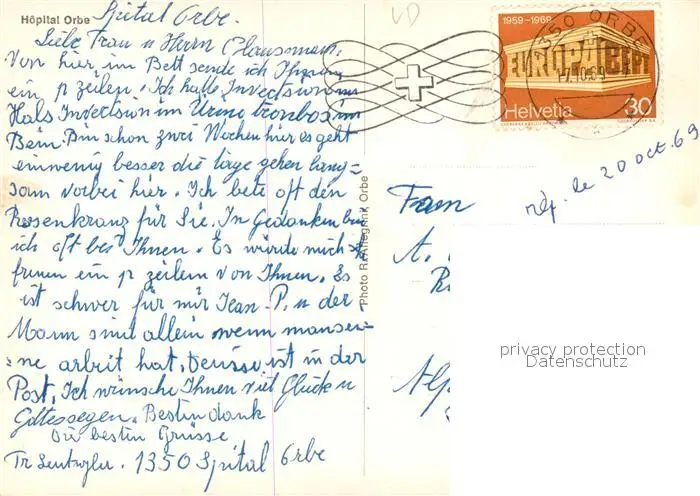 Hôpital Orbe
Spital Orbe.
Liebe Frau u Herrn
Von hier im Bett sende ich Ihnen
ein p zeilen. Ich habe Invectsion im
Hals Invectsion im Urine trombos im
Bein. Bin schon zwei Wochen hier es geht
einwenig besser die täge gehen lang=
sam vorbei hier. Ich bete oft den
Rosenkranz für Sie. In Gedanken bin
ich oft bei Ihnen. Es würde mich
freuen ein p zeilen von Ihnen. Es
ist schwer für mir Jean-P. u der
Mann sind allein wenn man sei=
=ne arbeit hat, ist in der
Post. Ich wünsche Ihnen viel Glück u
Gottessegen. Besten dank
Die besten Grüsse
1350 Spital Orbe
Photo Orbe
1959-1969
EUROPA CEPT
Helvetia 30
1350 ORBE
17.10.69
rép. le 20 oct. 69
Fam
A.
Alp
privacy protection
Datenschutz